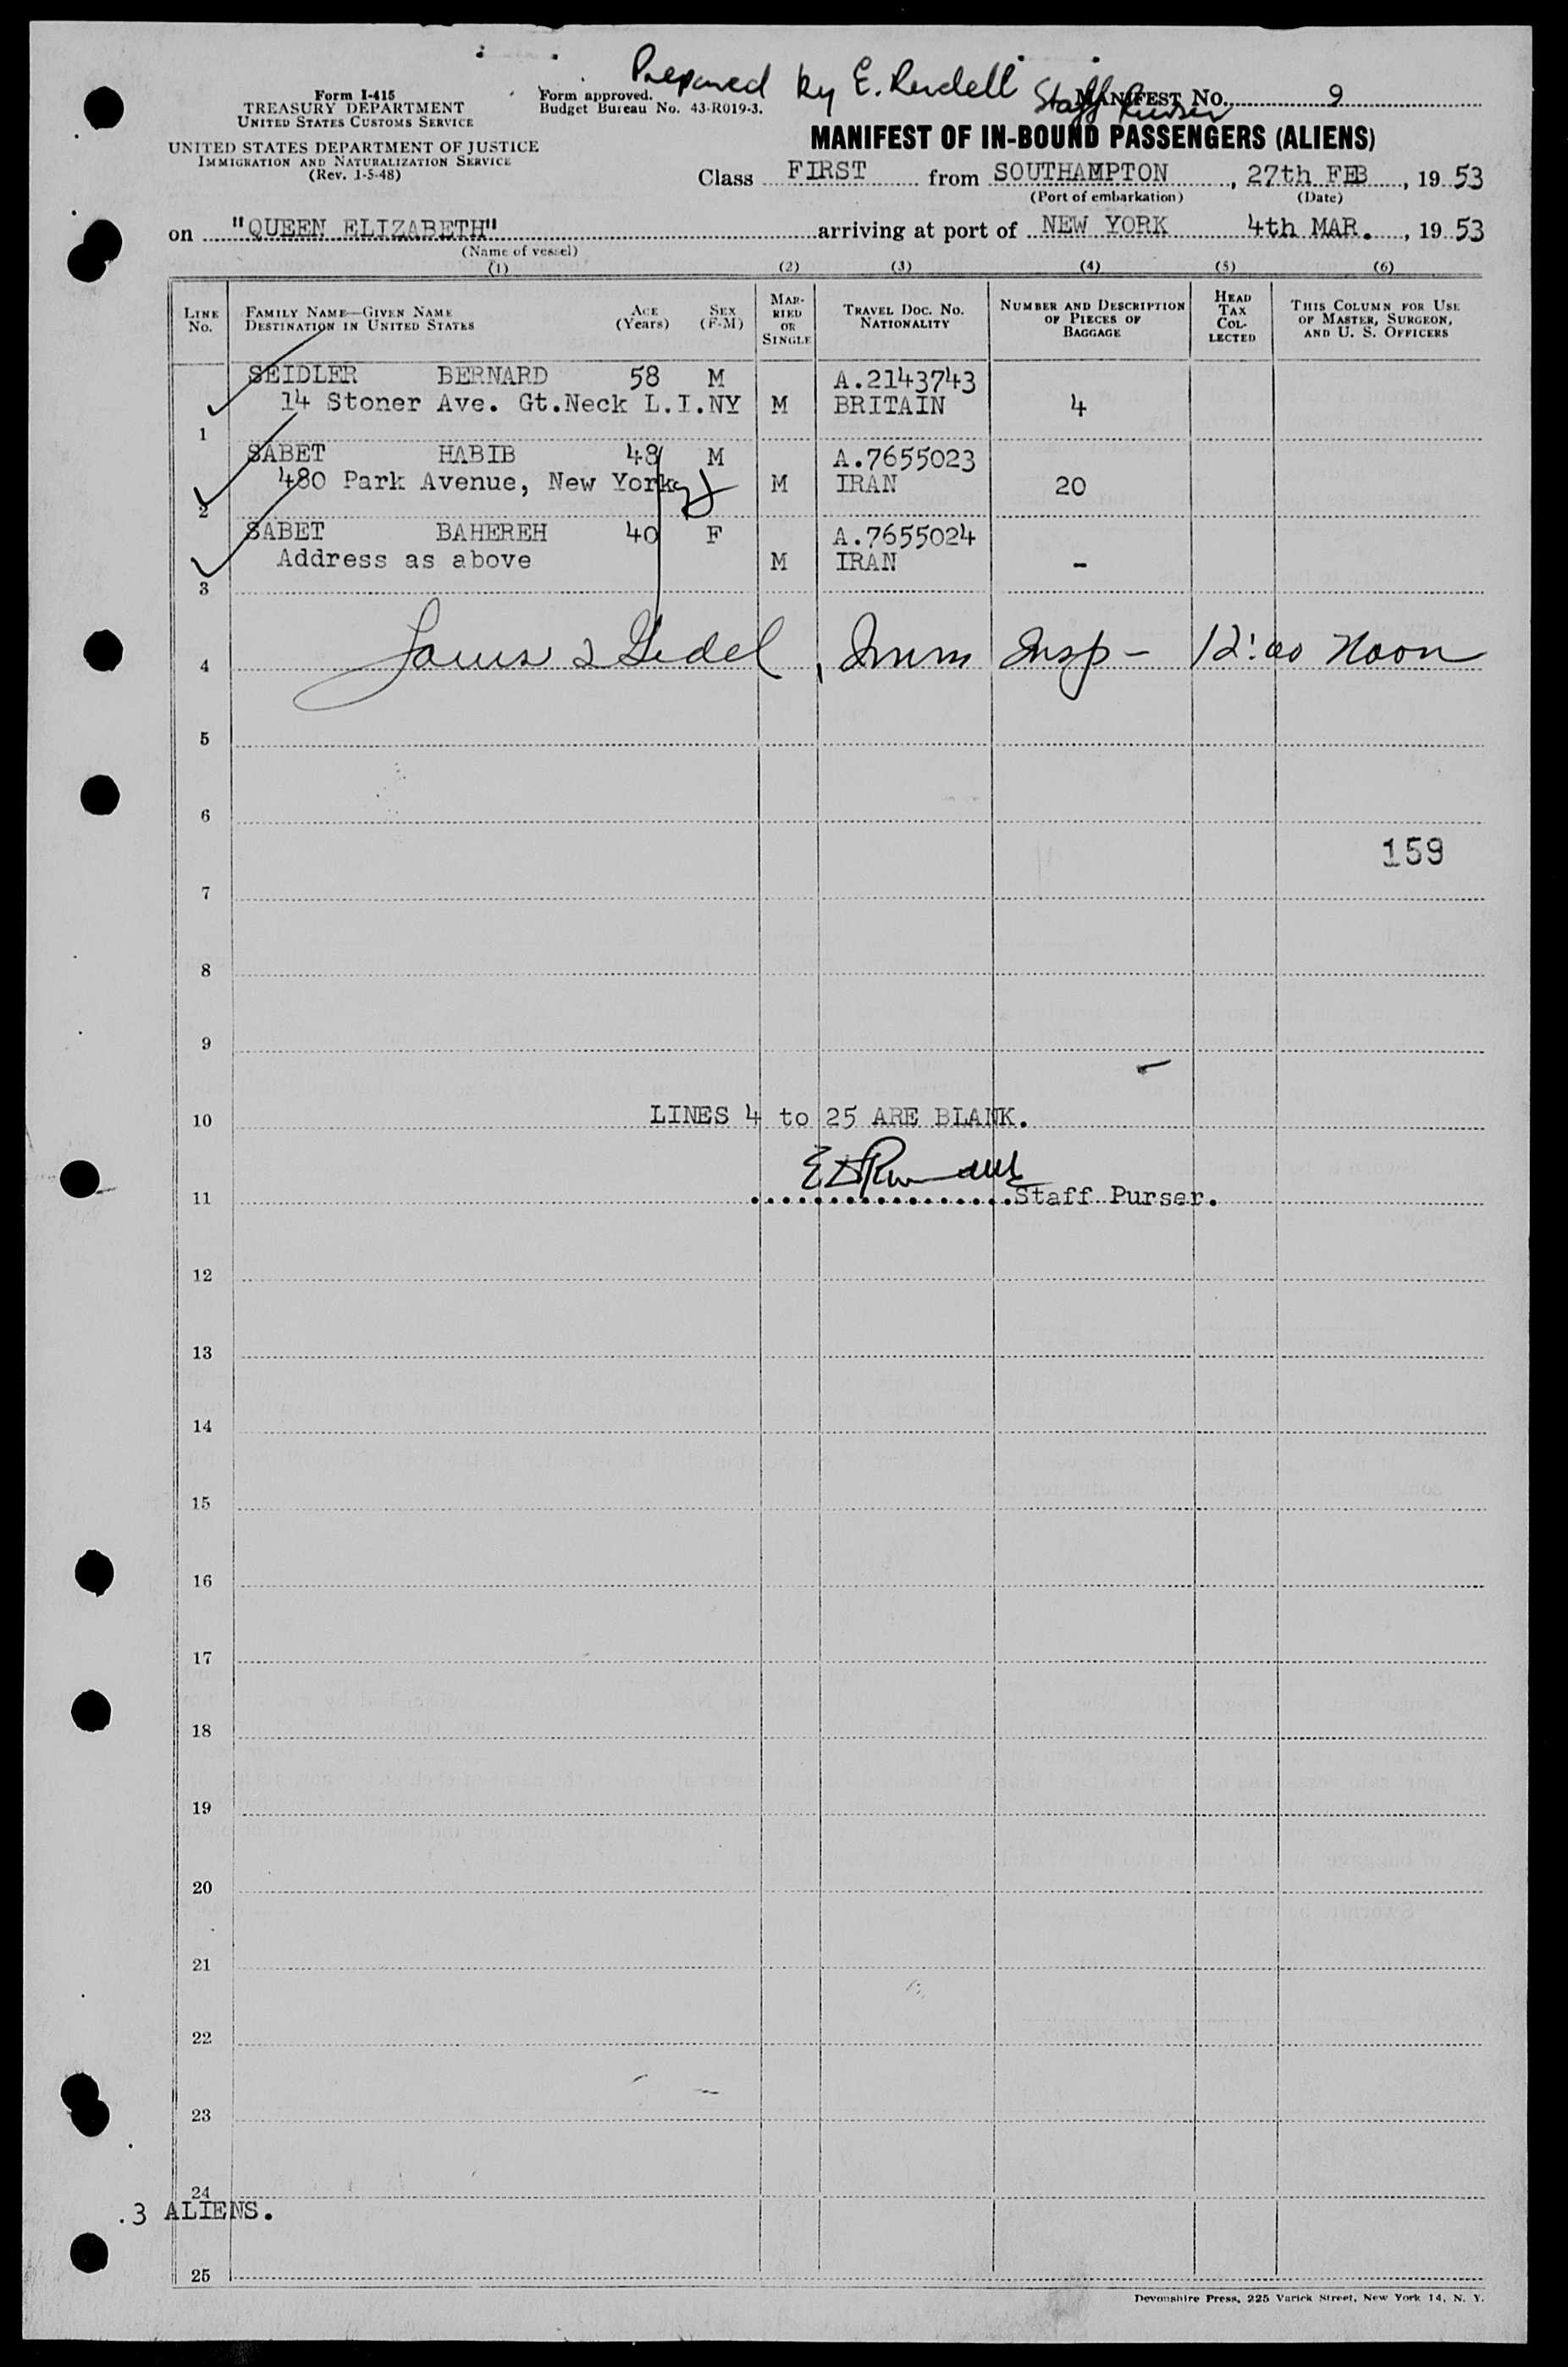 Prepared by E. Rendell Staff Purser
Form I-415
TREASURY DEPARTMENT
UNITED STATES CUSTOMS SERVICE
UNITED STATES DEPARTMENT OF JUSTICE
IMMIGRATION AND NATURALIZATION SERVICE
(Rev. 1-5-48)
Form approved.
Budget Bureau No. 43-R019-3.
MANIFEST No. 9
MANIFEST OF IN-BOUND PASSENGERS (ALIENS)
Class FIRST from SOUTHAMPTON, 27th FEB, 1953
(Port of embarkation) (Date)
on "QUEEN ELIZABETH" arriving at port of NEW YORK 4th MAR., 1953
(Name of vessel)
(1) (2) (3) (4) (5) (6)
LINE No. FAMILY NAME—GIVEN NAME DESTINATION IN UNITED STATES AGE (Years) SEX (F-M) MARRIED OR SINGLE TRAVEL DOC. NO. NATIONALITY NUMBER AND DESCRIPTION OF PIECES OF BAGGAGE HEAD TAX COLLECTED THIS COLUMN FOR USE OF MASTER, SURGEON, AND U. S. OFFICERS
SEIDLER BERNARD 58 M A.2143743
14 Stoner Ave. Gt.Neck L.I.NY M BRITAIN 4
1
SABET HABIB 48 M A.7655023
480 Park Avenue, New York M IRAN 20
2
SABET BAHEREH 40 F A.7655024
Address as above M IRAN -
3
4 Imm Insp - 12:00 Noon
5
6
159
7
8
9
10 LINES 4 to 25 ARE BLANK.
11 Staff Purser.
12
13
14
15
16
17
18
19
20
21
22
23
24
.3 ALIENS.
25
Devonshire Press, 225 Varick Street, New York 14, N. Y.